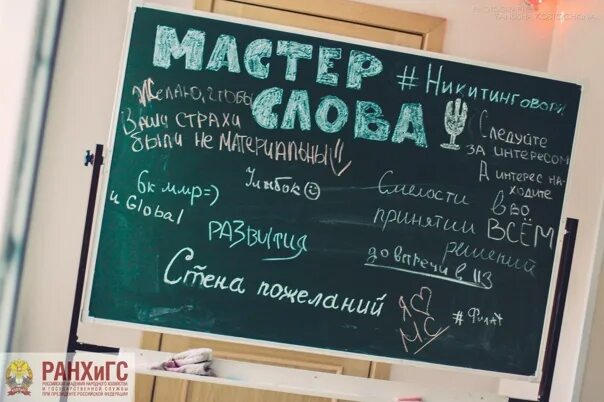 МАСТЕР
СЛОВА
#Никитинговори
Желаю, чтобы
Ваши страхи
были не материальны!!
Следуйте
за интересом
А интерес на-
ходите
во
ВСЁМ
бк мир=)
и Global
Улыбок
развития
Смелости
принятии
решений
до встречи в 113
Стена пожеланий
Я
МС
РАНХиГС
РОССИЙСКАЯ АКАДЕМИЯ НАРОДНОГО ХОЗЯЙСТВА
И ГОСУДАРСТВЕННОЙ СЛУЖБЫ
ПРИ ПРЕЗИДЕНТЕ РОССИЙСКОЙ ФЕДЕРАЦИИ